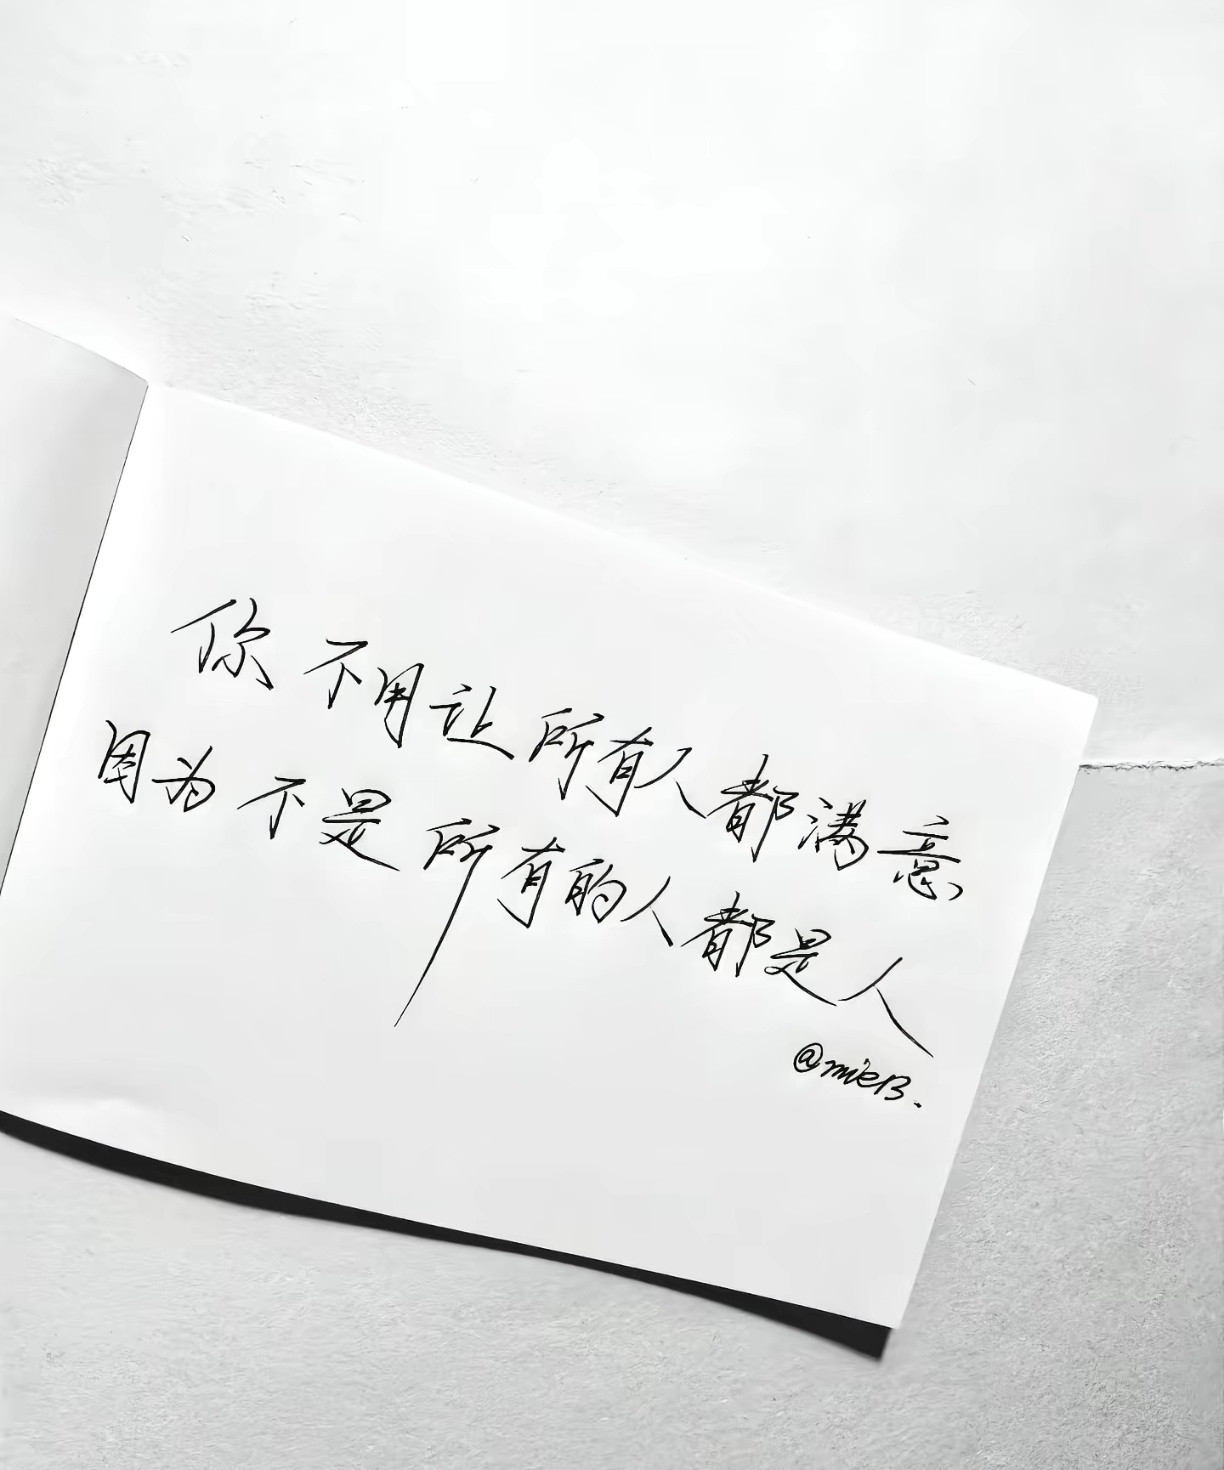 你不用让所有人都满意
因为不是所有的人都是人
@mieB.